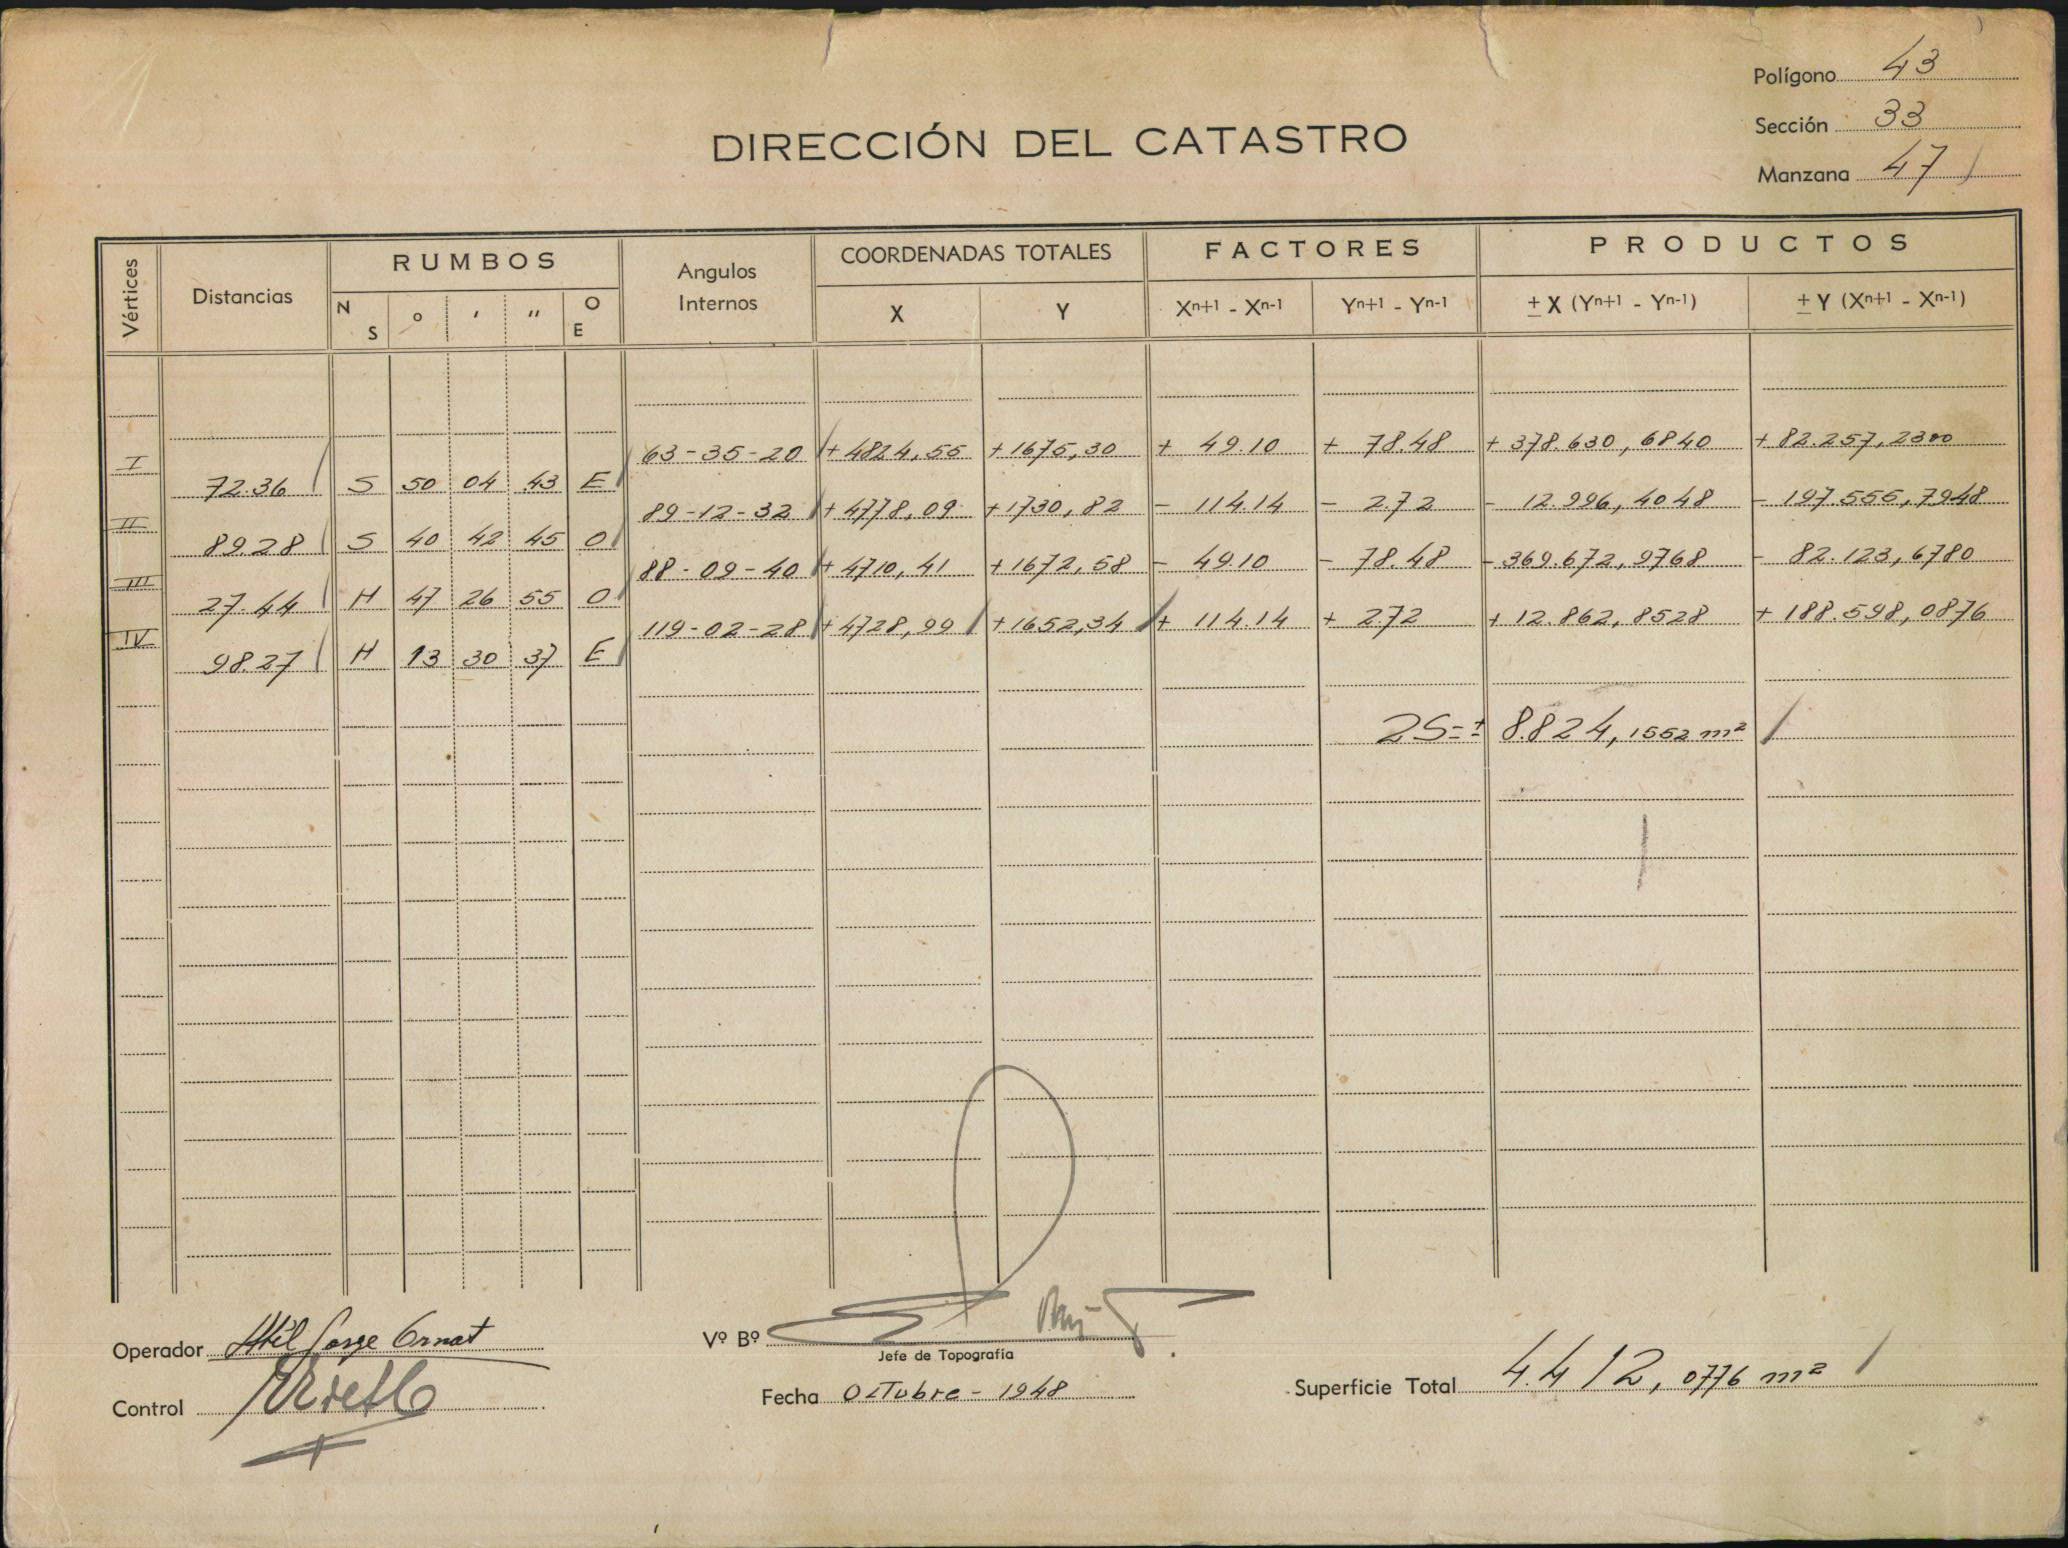 Polígono 43
Sección 33
Manzana 47
DIRECCIÓN DEL CATASTRO
Vértices Distancias RUMBOS Angulos Internos COORDENADAS TOTALES FACTORES PRODUCTOS
N S ° ' '' O E X Y Xn+1 - Xn-1 Yn+1 - Yn-1 ± X (Yn+1 - Yn-1) ± Y (Xn+1 - Xn-1)
I 63-35-20 +4824,55 +1675,30 + 49.10 + 78.48 +378.630,6840 +82.257,2300
72.36 S 50 04 43 E
II 89-12-32 +4778,09 +1730,82 - 114.14 - 2.72 - 12.996,4048 - 197.555,7948
89.28 S 40 42 45 O
III 88-09-40 +4710,41 +1672,58 - 49.10 - 78.48 -369.672,9768 - 82.123,6780
27.44 N 47 26 55 O
IV 119-02-28 +4728,99 +1652,34 + 114.14 + 2.72 + 12.862,8528 + 188.598,0876
98.27 N 13 30 37 E
2S=± 8.824,1552 m²
Operador Jorge
Vº Bº
Jefe de Topografía
Control
Fecha Octubre - 1948
Superficie Total 4.412,0776 m²